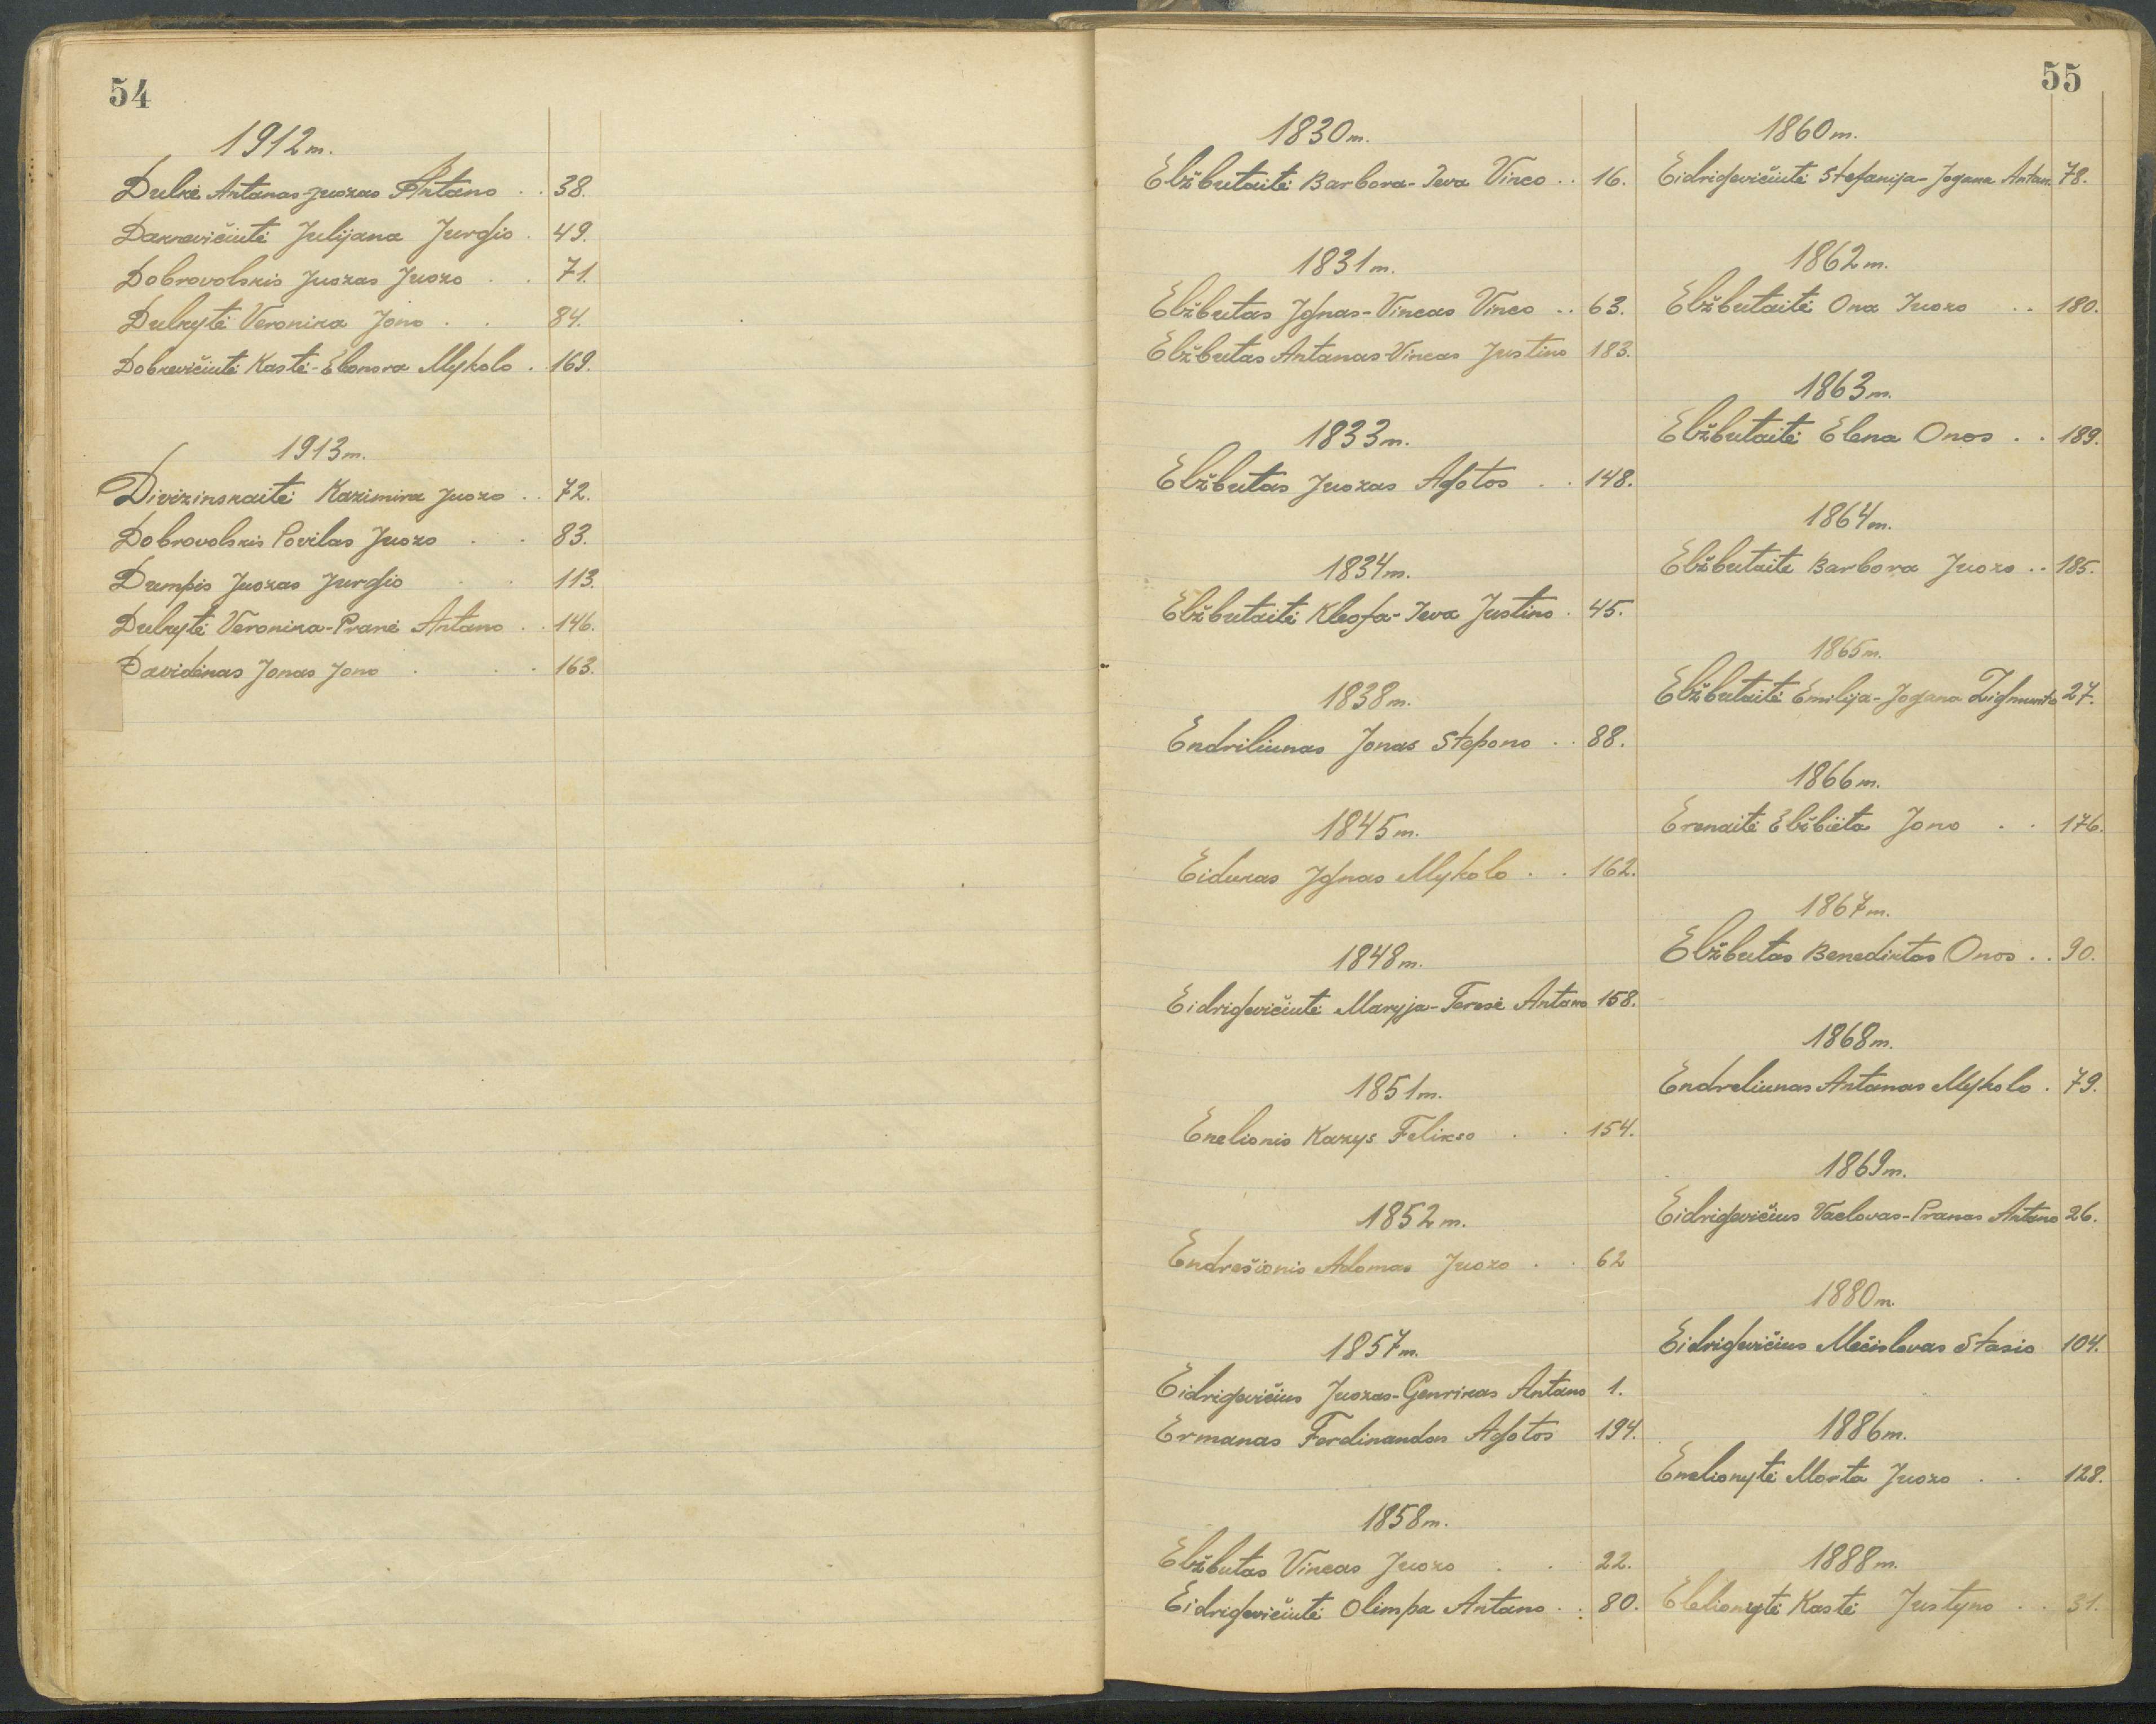 54
1912 m.
Dulkė Antanas-Juozas Antano . . 38.
Daknevičiutė Julijana Jurgio . 49.
Dobrovolskis Juozas Juozo . . 71.
Dulkytė Veronika Jono . . 84.
Dobkevičiutė Kastė-Elenora Mykolo . 169.
1913 m.
Divizinskaitė Kazimira Juozo . . 72.
Dobrovolskis Povilas Juozo . . 83.
Dumpis Juozas Jurgio . . 113.
Dulkytė Veronika-Pranė Antano . . 146.
Davidėnas Jonas Jono . . . 163.
55
1830 m.
Elžbutaitė Barbora-Ieva Vinco . . 16.
1831 m.
Elžbutas Ignas-Vincas Vinco . . 63.
Elžbutas Antanas-Vincas Justino 183.
1833 m.
Elžbutas Juozas Agotos . . 148.
1834 m.
Elžbutaitė Kleofa-Ieva Justino . 45.
1838 m.
Endriliunas Jonas Stepono . . 88.
1845 m.
Eidukas Ignas Mykolo . . 162.
1848 m.
Eidrigevičiutė Maryja-Teresė Antano 158.
1851 m.
Enelionis Kazys Felikso . . 154.
1852 m.
Endrešionis Adomas Juozo . . 62
1857 m.
Eidrigevičius Juozas-Genrikas Antano 1.
Ermanas Ferdinandas Agotos 194.
1858 m.
Elžbutas Vincas Juozo . . 22.
Eidrigevičiutė Olimpa Antano . . 80.
1860 m.
Eidrigevičiutė Stefanija-Jogana Antan. 78.
1862 m.
Elžbutaitė Ona Juozo . . 180.
1863 m.
Elžbutaitė Elena Onos . . 189.
1864 m.
Elžbutaitė Barbora Juozo . . 185.
1865 m.
Elžbutaitė Emilija-Jogana Zigmunto 27.
1866 m.
Erenaitė Elžbieta Jono . . 176.
1867 m.
Elžbutas Benediktas Onos . . 90.
1868 m.
Endreliunas Antanas Mykolo . 79.
1869 m.
Eidrigevičius Vaclovas-Pranas Antano 26.
1880 m.
Eidrigevičius Mečislovas Stasio 104.
1886 m.
Enelionytė Morta Juozo . . 128.
1888 m.
Elelionytė Kastė Justyno . . 31.